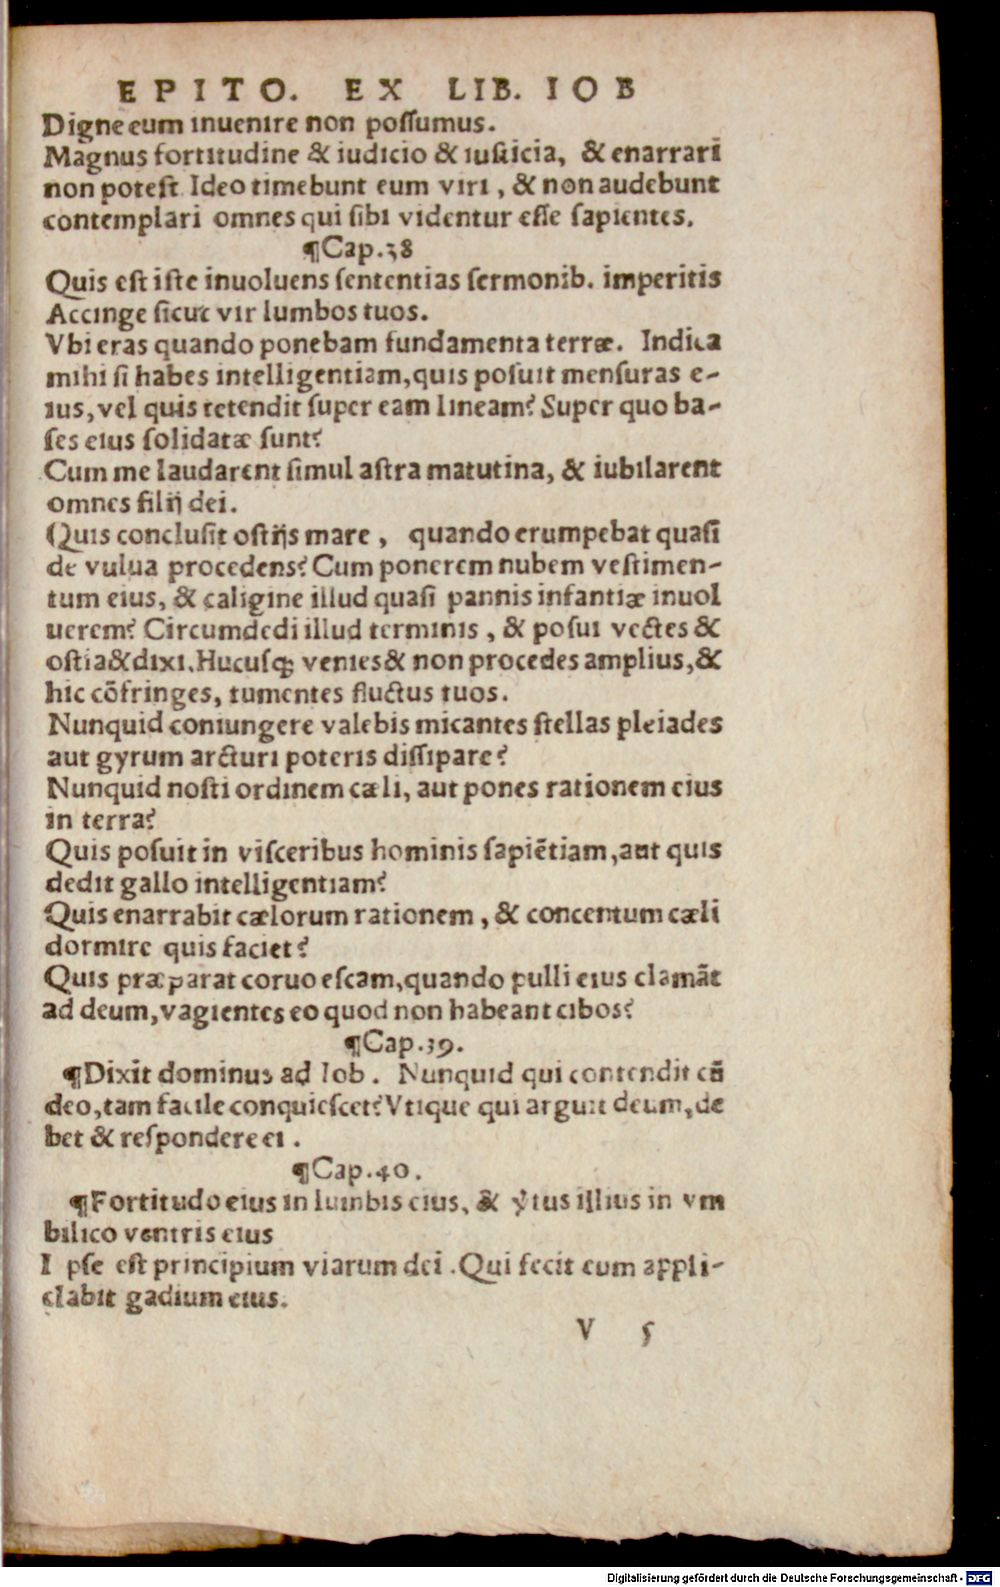 EPITO. EX LIB. IOB
Digne eum inuenire non possumus.
Magnus fortitudine & iudicio & iusticia, & enarrari
non potest Ideo timebunt eum viri, & non audebunt
contemplari omnes qui sibi videntur esse sapientes.
¶Cap.38
Quis est iste inuoluens sententias sermonib. imperitis
Accinge sicut vir lumbos tuos.
Vbi eras quando ponebam fundamenta terræ. Indica
mihi si habes intelligentiam, quis posuit mensuras e-
ius, vel quis tetendit super eam lineam? Super quo ba-
ses eius solidatæ sunt?
Cum me laudarent simul astra matutina, & iubilarent
omnes filij dei.
Quis conclusit ostijs mare, quando erumpebat quasi
de vulua procedens? Cum ponerem nubem vestimen-
tum eius, & caligine illud quasi pannis infantiæ inuol
uerem? Circumdedi illud terminis, & posui vectes &
ostia & dixi. Hucusq; venies & non procedes amplius, &
hic cõfringes, tumentes fluctus tuos.
Nunquid coniungere valebis micantes stellas pleiades
aut gyrum arcturi poteris dissipare?
Nunquid nosti ordinem cæli, aut pones rationem eius
in terra?
Quis posuit in visceribus hominis sapiẽtiam, aut quis
dedit gallo intelligentiam?
Quis enarrabit cælorum rationem, & concentum cæli
dormire quis faciet?
Quis præparat coruo escam, quando pulli eius clamãt
ad deum, vagientes eo quod non habeant cibos?
¶Cap.39.
¶Dixit dominus ad Iob. Nunquid qui contendit cũ
deo, tam facile conquiescet? Vtique qui arguit deum, de
bet & respondere ei.
¶Cap.40.
¶Fortitudo eius in lumbis eius, & v̓tus illius in vm
bilico ventris eius
I pse est principium viarum dei. Qui fecit eum appli-
clabit gadium eius.
V 5
Digitalisierung gefördert durch die Deutsche Forschungsgemeinschaft - DFG